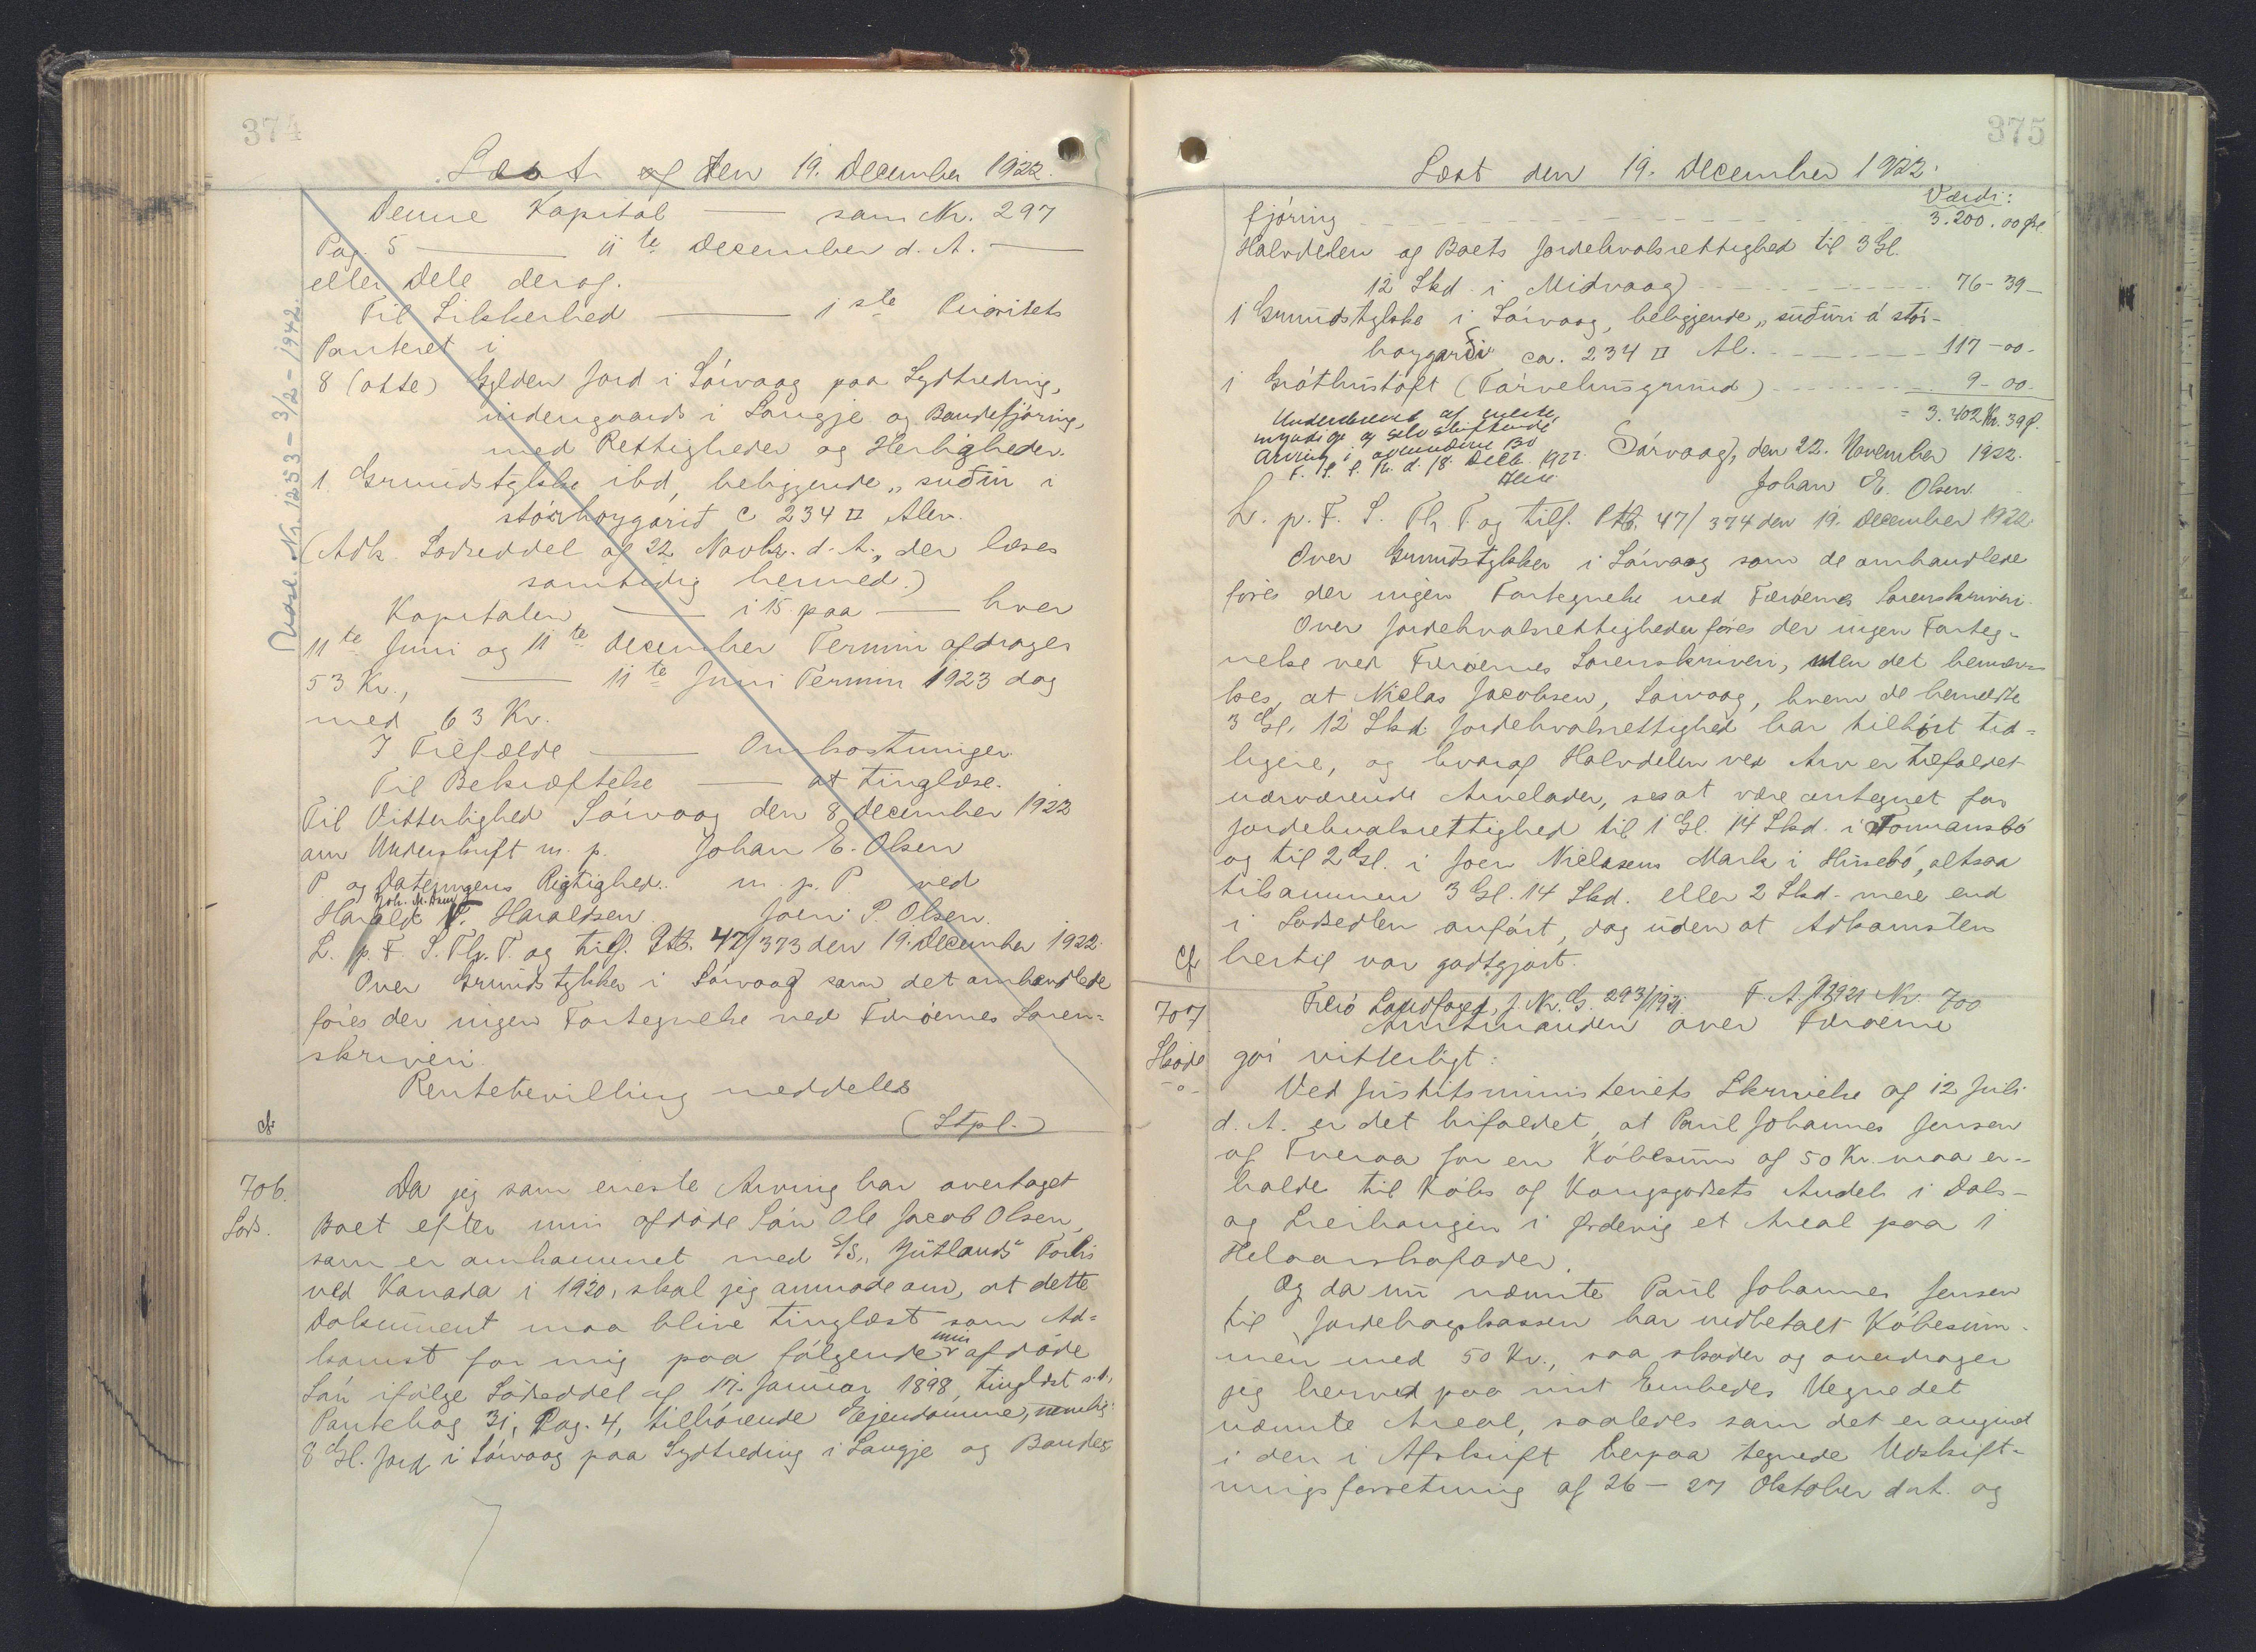 374
Læst af den 19. December 1922.
Udsl. Nr. 1253 - 3/2 - 1942.
Denne Kapital — som Nr. 297
Pag. 5 — 11te December d. A. —
eller Dele deraf.
Til Sikkerhed — 1ste Prioritets
Panteret i
8 (otte) Gylden Jord i Sórvaag paa Sydtreding,
indengaards i Laugje og Bandefjóring,
med Rettigheder og Herligheder.
1 Grundstykke ibd, beliggende „sudin i
stórhoygarid c 234 □ Alen.
(Adk. Lodseddel af 22 Novbr. d. A., der læses
samtidig hermed.)
Kapitalen — i 15 paa — hver
11te Juni og 11te December Termin afdrages
53 Kr., — 11te Juni Termin 1923 dog
med 63 Kr.
I Tilfælde — Omkostninger
Til Bekræftelse — at tinglæse.
Til Vitterlighed Sórvaag den 8 December 1922
om Underskrift m. p. Johan E. Olsen
P og Dateringens Rigtighed. m. p. P. ved
Joh. M.
Harald F. Haraldsen. Joen P. Olsen.
L. p. F. S. Th. T. og tilf. Ptb. 47/373 den 19. December 1922.
Over Grundstykker i Sórvaag som det omhandlede
føres der ingen Fortegnelse ved Færóernes Soren=
skriveri.
Rentebevilling meddeles
(Stpl.)
cfr
706.
Lods.
Da jeg som eneste Arving har overtaget
Boet efter min afdøde Són Ole Jacob Olsen,
som er omkommet med S/S „Jütlands" Forlis
ved Kanada i 1920, skal jeg anmode om, at dette
Dokument maa blive tinglæst som Ad=
komst for mig paa fólgende min afdóde
Són ifólge Lodseddel af 17. Januar 1898, tinglæst s. A.,
Pantebog 31, Pag. 4, tilhórende Ejendomme, nemlig:
8 Gl. Jord i Sórvaag paa Sydtreding i Laugje og Bande=
375
Læst den 19. December 1922.
Værdi:
fjóring 3.200.00 Øre
Halvdelen af Boets Jordehvalsrettighed til 3 Gl.
12 Skd. i Midvaag 76-39-
1 Grundstykke i Sórvaag, beliggende „sudúri á stór-
hoygardi ca. 234 □ Al. 117-00-
1 Gróthústóft (Tórvehusgrund) 9-00-
= 3.402 Kr. 39 Ø.
Underskrevet af eneste
myndige og selvskiftende
Arving i ovennævnte Bo
F. S. S. K. d. 18. Decb. 1922.
Sórvaag, den 22. November 1922.
Johan E. Olsen.
L. p. F. S. Th. T. og tilf. Ptb. 47/374 den 19. December 1922.
Over Grundstykker i Sórvaag som de omhandlede
føres der ingen Fortegnelse ved Færóernes Sorenskriveri.
Over Jordehvalsrettigheder føres der ingen Forteg=
nelse ved Færóernes Sorenskriveri, men det bemær=
kes, at Niclas Jacobsen, Sórvaag, hvem de bemeldte
3 Gl. 12 Skd. Jordehvalsrettighed har tilhórt tid=
ligere, og hvoraf Halvdelen ved Arv er tilfaldet
nærværende Arvelader, ses at være antegnet for
Jordehvalsrettighed til 1 Gl. 14 Skd. i Tormansbó
og til 2 Gl. i Joen Nielsens Mark i Húsebó, altsaa
tilsammen 3 Gl. 14 Skd. eller 2 Skd. mere end
i Lodsedlen anfórt, dog uden at Adkomsten
hertil var godtgjort.
cfr
707
Skóde
-o-
Færó Landfoged, J. Nr. G. 293/1921. F. A. J 1921 Nr. 700
Amtmanden over Færóerne
gór vitterligt:
Ved Justitsministeriets Skrivelse af 12 Juli
d. A. er det bifaldet, at Paul Johannes Jensen
af Tveraa for en Kóbesum af 50 Kr. maa er=
holde til Kóbs af Kongsgodsets Andels i Dals-
og Leirhaugin i Ørdevig et Areal paa 1
Helaarskofoder.
Og da nu nævnte Paul Johannes Jensen
til Jordebogskassen har indbetalt Kóbesum=
men med 50 Kr., saa skóder og overdrager
jeg herved paa mit Embedes Vegne det
nævnte Areal, saaledes som det er angivet
i den i Afskrift herpaa tegnede Udskift=
ningsforretning af 26 - 27 Oktober d. A. og